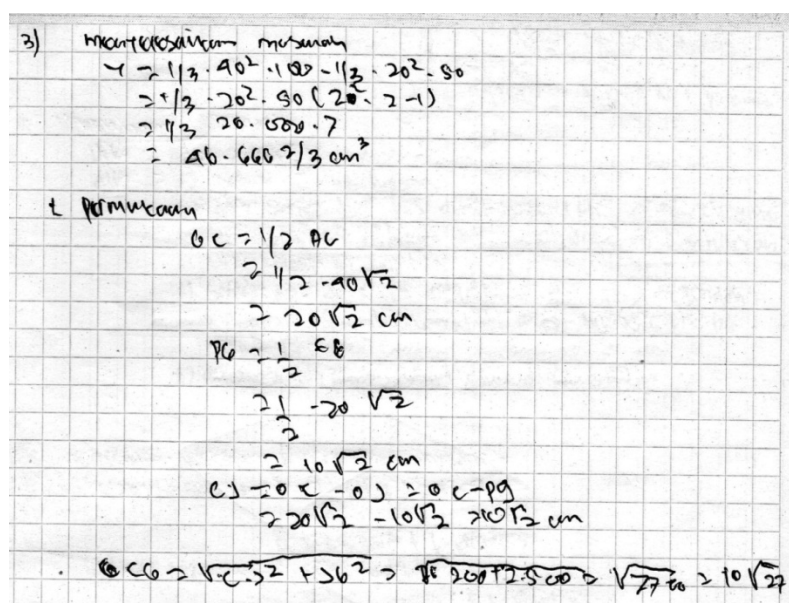 3) menyelesaikan masalah
V = 1/3 . 40² . 100 - 1/3 . 20² . 50
= 1/3 . 20² . 50 (2² . 2 - 1)
= 1/3 20.000 . 7
= 46.666 2/3 cm³
L permukaan
OC = 1/2 AC
= 1/2 - 40√2
= 20√2 cm
PG = 1/2 EG
= 1/2 - 20 √2
= 10√2 cm
CJ = OC - OJ = OC - PG
= 20√2 - 10√2 = 10√2 cm
CG = √CJ² + JG² = √200 + 2.500 = √2700 = 10√27